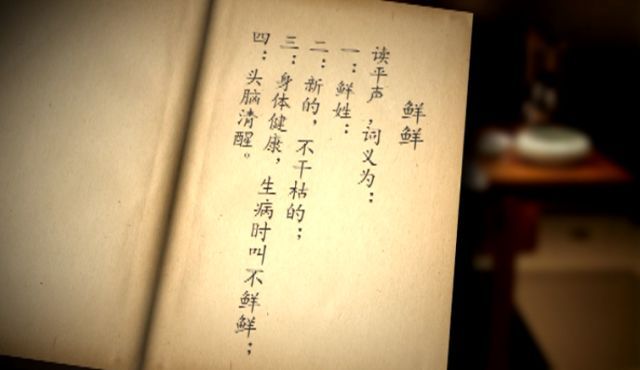 鲜鲜
读平声,词义为:
一:鲜姓:
二:新的,不干枯的;
三:身体健康,生病时叫不鲜鲜;
四:头脑清醒。